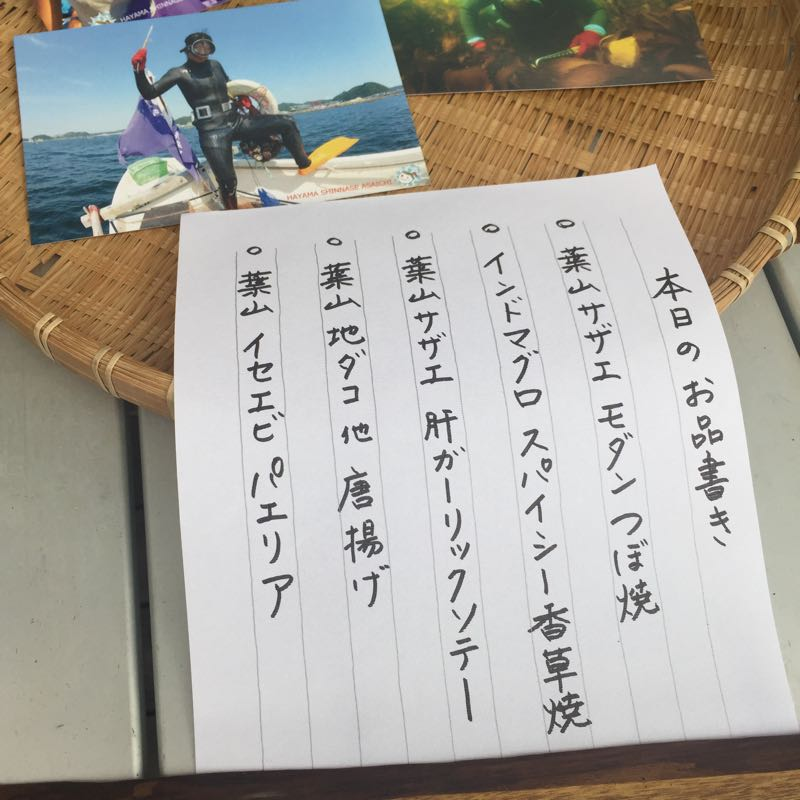 本日のお品書き
○ 葉山サザエ モダンつぼ焼
○ インドマグロ スパイシー香草焼
○ 葉山サザエ 肝ガーリックソテー
○ 葉山 地ダコ 他 唐揚げ
○ 葉山 イセエビ パエリア
HAYAMA SHINNASE ASAICHI
HAYAMA SHINNASE ASAICHI